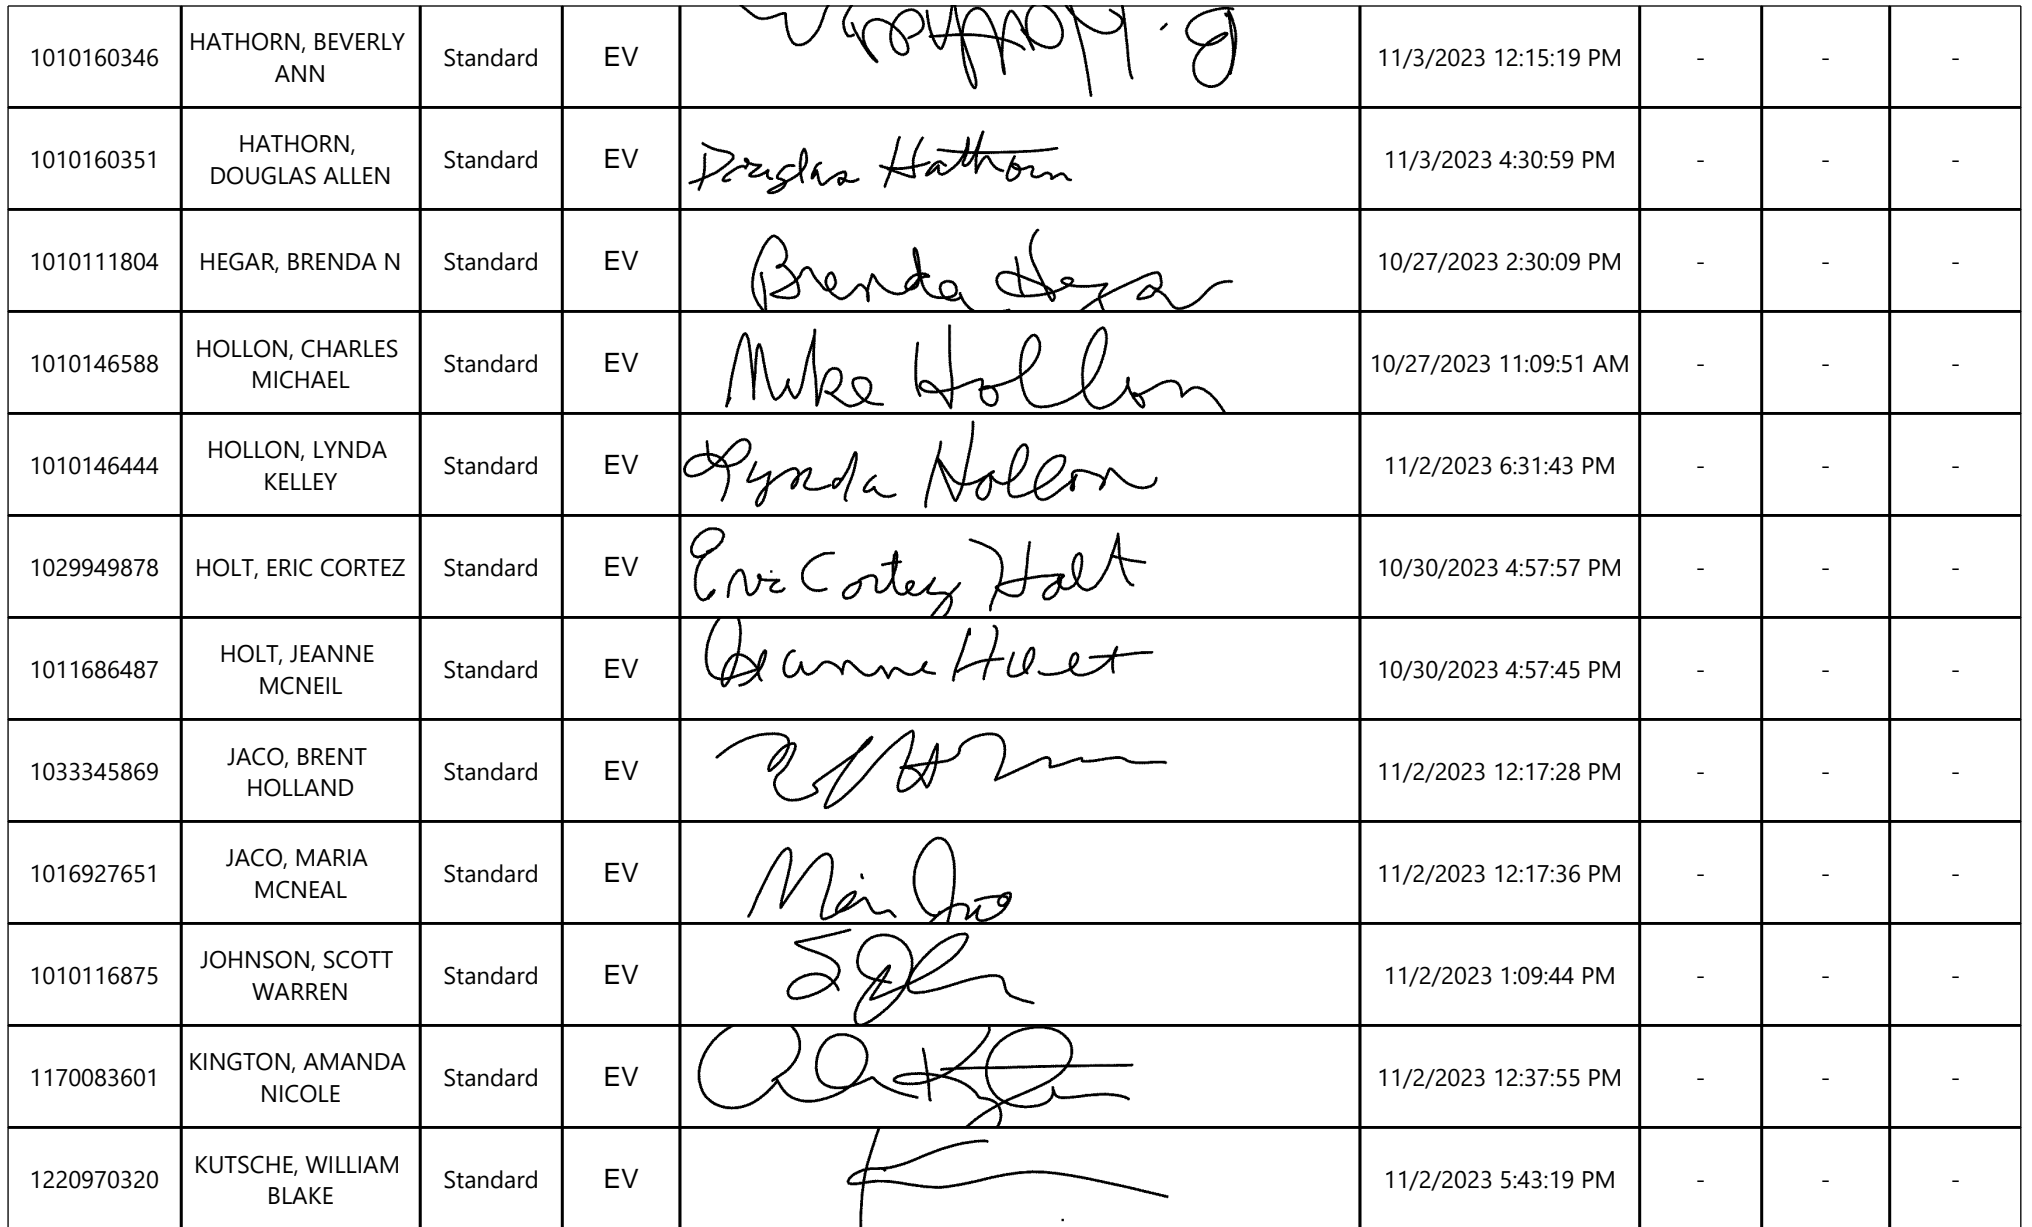 1010160346 HATHORN, BEVERLY ANN Standard EV 11/3/2023 12:15:19 PM - - -
1010160351 HATHORN, DOUGLAS ALLEN Standard EV Douglas Hathorn 11/3/2023 4:30:59 PM - - -
1010111804 HEGAR, BRENDA N Standard EV Brenda Hegar 10/27/2023 2:30:09 PM - - -
1010146588 HOLLON, CHARLES MICHAEL Standard EV Mike Hollon 10/27/2023 11:09:51 AM - - -
1010146444 HOLLON, LYNDA KELLEY Standard EV Lynda Hollon 11/2/2023 6:31:43 PM - - -
1029949878 HOLT, ERIC CORTEZ Standard EV Eric Cortez Holt 10/30/2023 4:57:57 PM - - -
1011686487 HOLT, JEANNE MCNEIL Standard EV Jeanne Holt 10/30/2023 4:57:45 PM - - -
1033345869 JACO, BRENT HOLLAND Standard EV 11/2/2023 12:17:28 PM - - -
1016927651 JACO, MARIA MCNEAL Standard EV 11/2/2023 12:17:36 PM - - -
1010116875 JOHNSON, SCOTT WARREN Standard EV 11/2/2023 1:09:44 PM - - -
1170083601 KINGTON, AMANDA NICOLE Standard EV 11/2/2023 12:37:55 PM - - -
1220970320 KUTSCHE, WILLIAM BLAKE Standard EV 11/2/2023 5:43:19 PM - - -